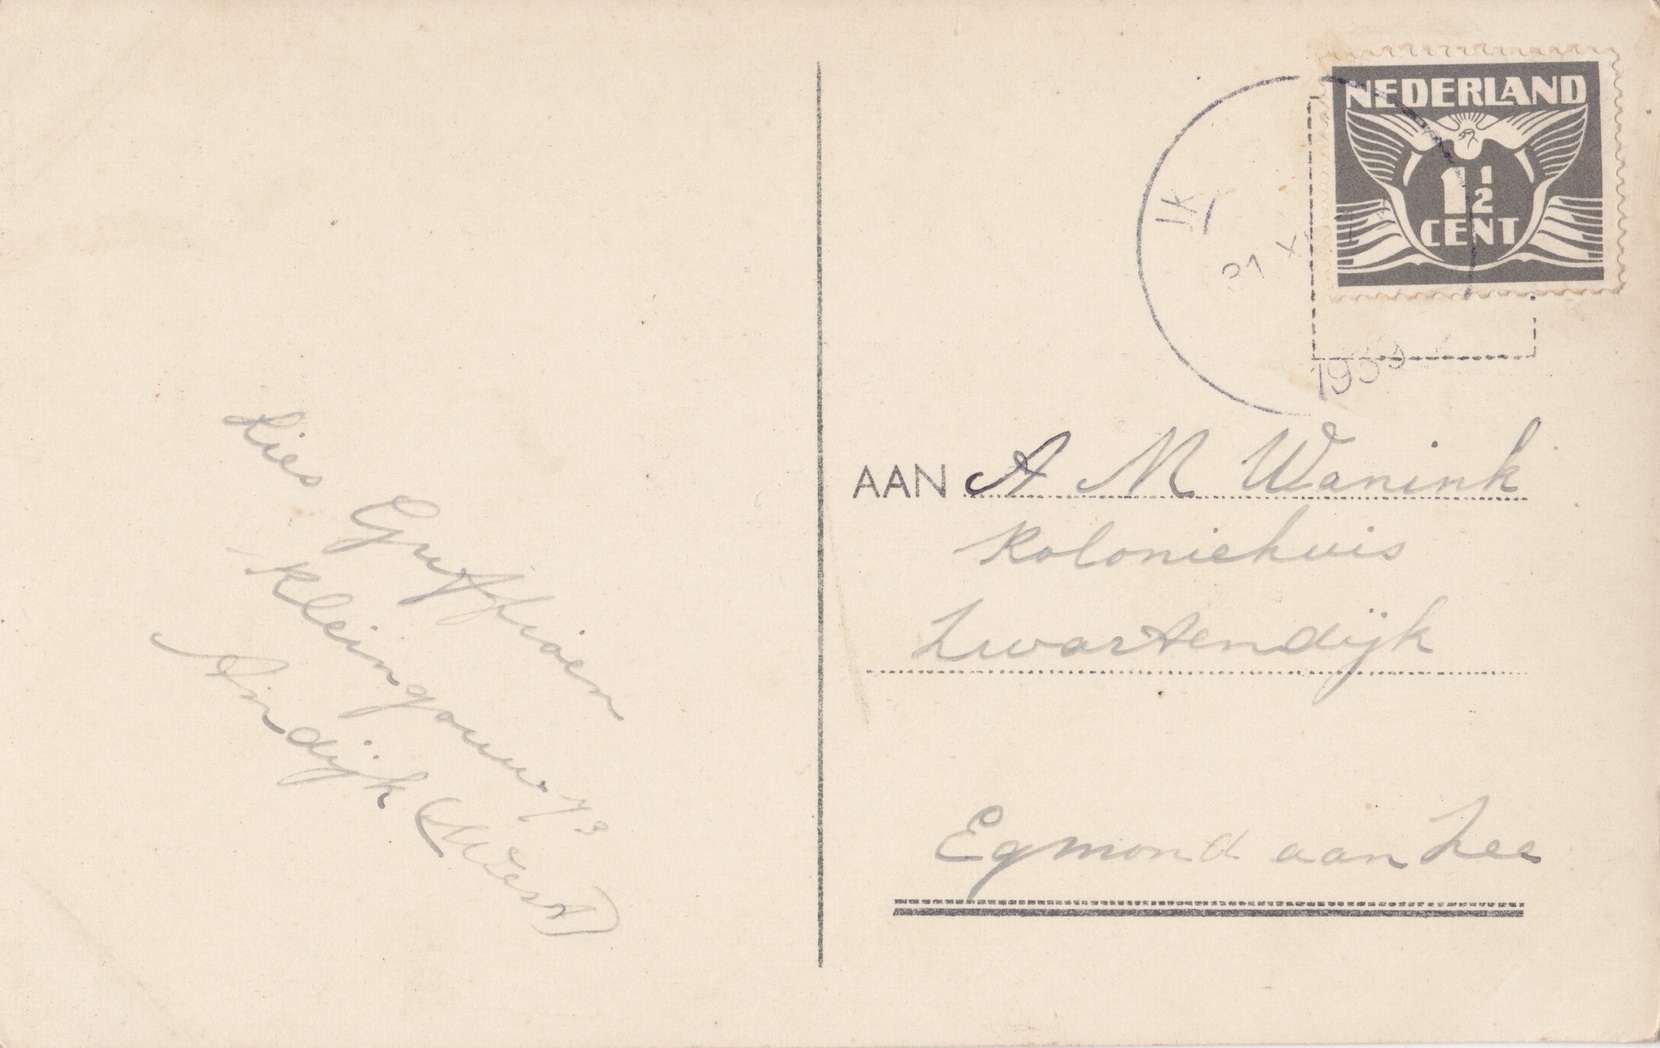 Lies Gruffioen
Kleingouw 73
Andijk (West)
NEDERLAND
1½
CENT
IK
31 X
1939
AAN A M Wanink
Koloniehuis
Zwartendijk
Egmond aan Zee